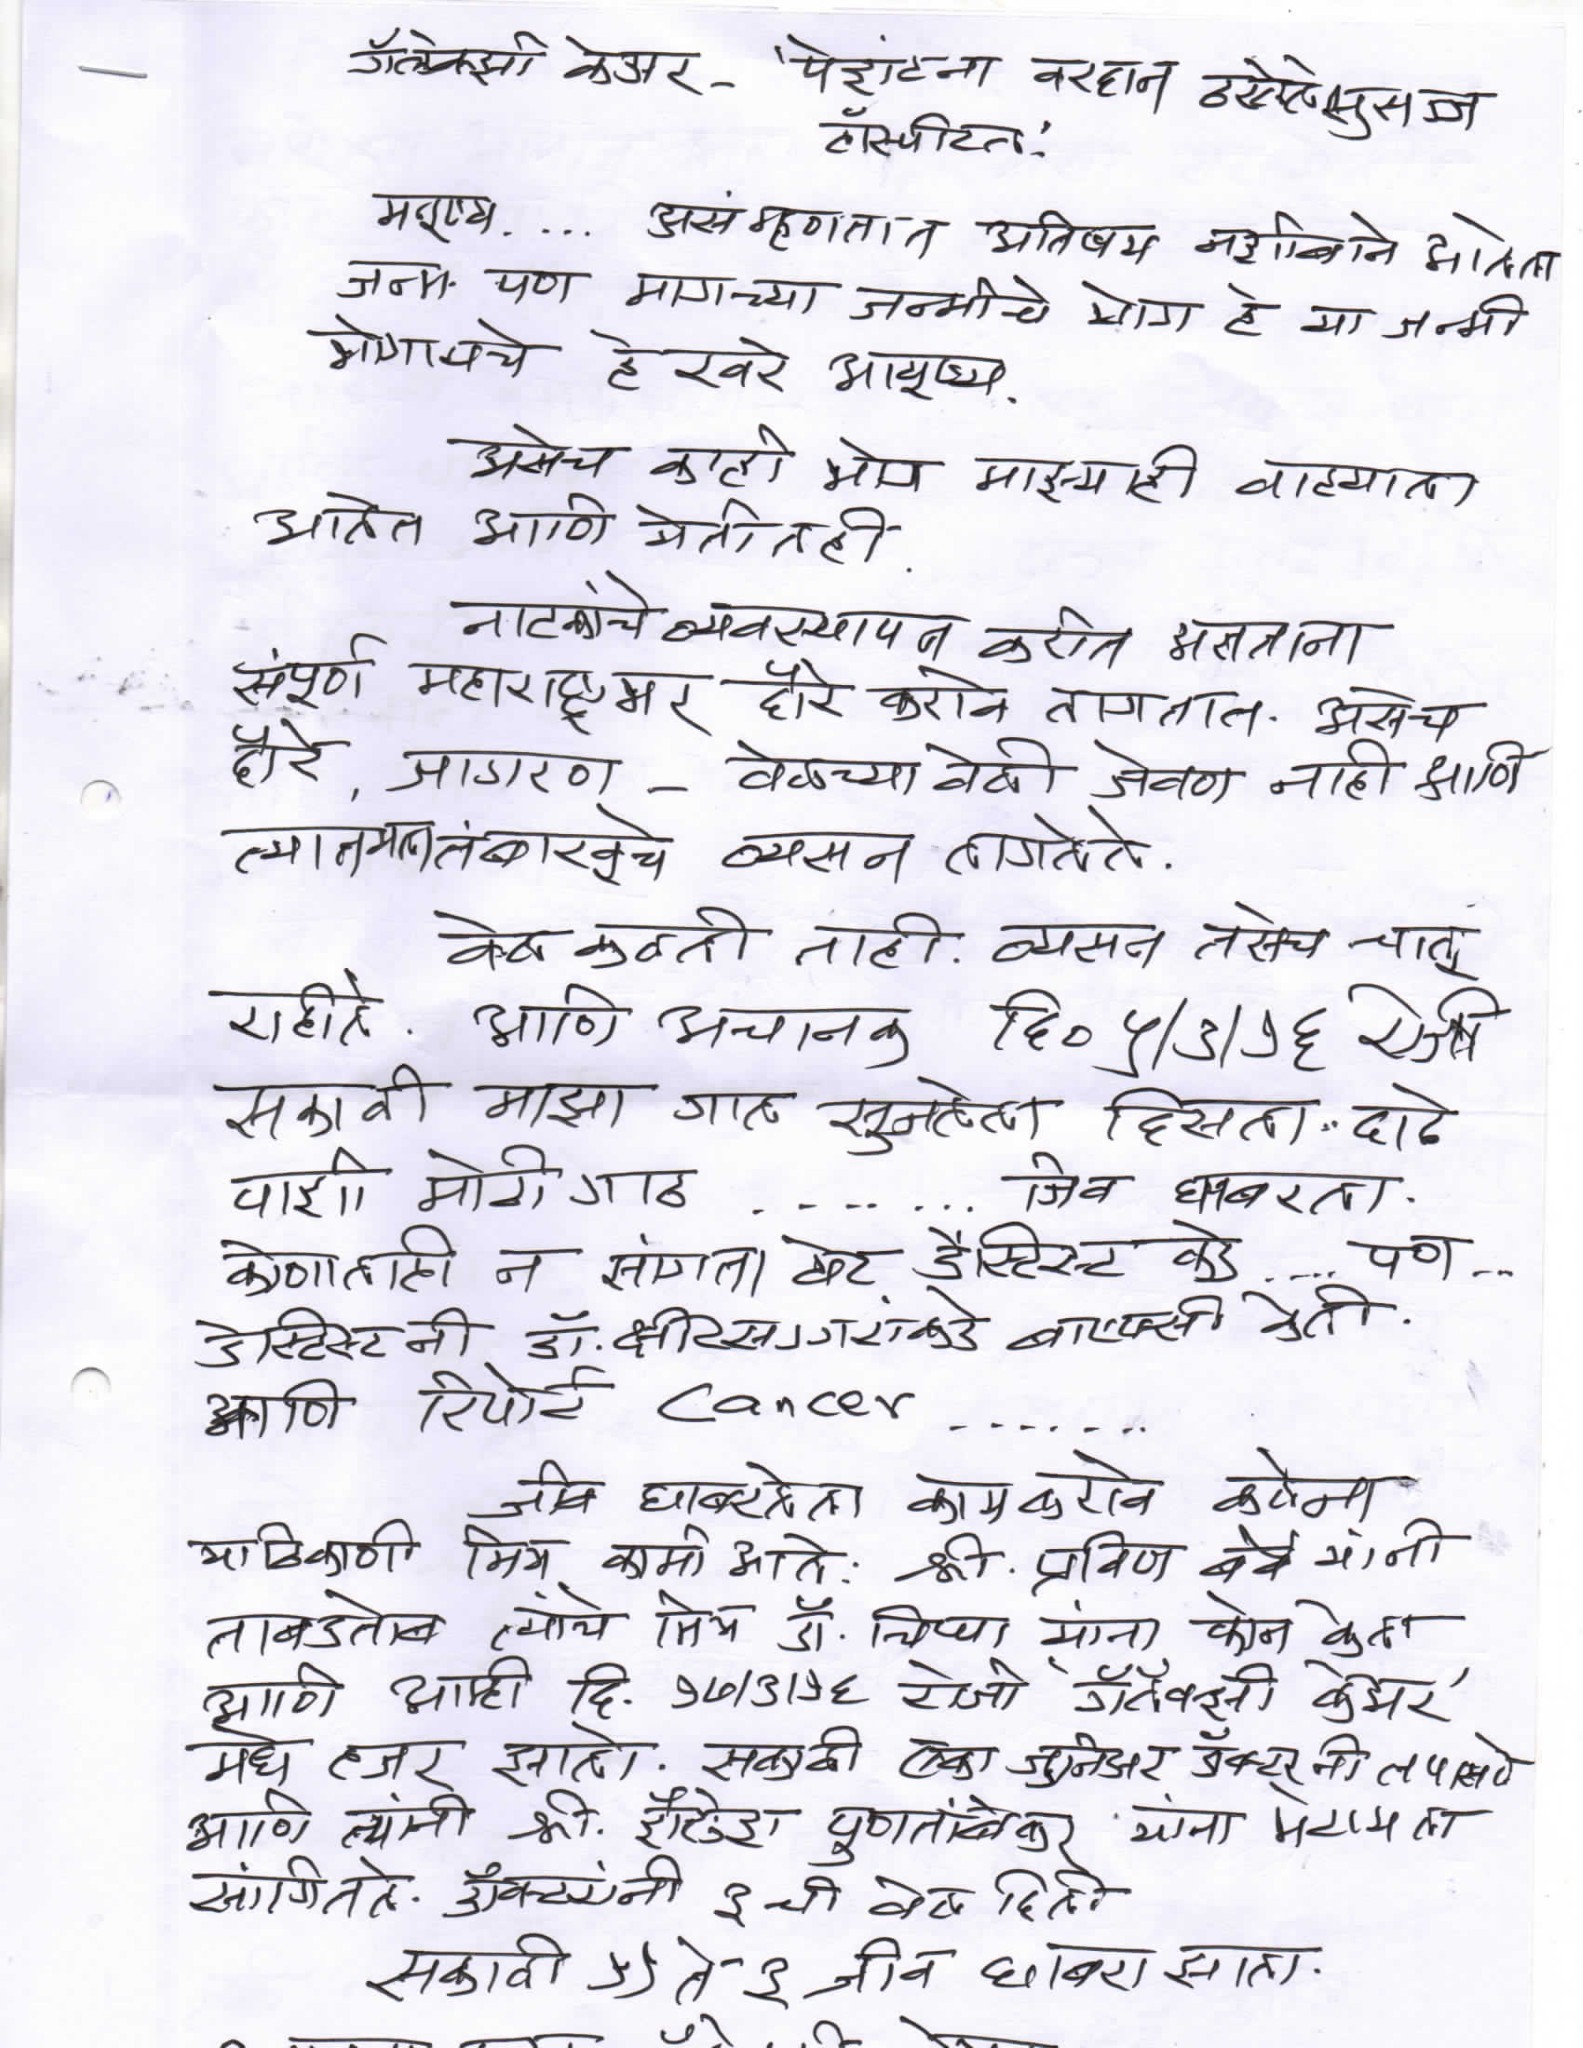 गॅलेक्सी केअर - 'पेशंटना वरदान ठरलेले सुसज्ज
हॉस्पीटल.'
मनुष्य.... असं म्हणतात अतिषय नशीबाने आलेला
जन्म पण मागच्या जन्मीचे भोग हे या जन्मी
भोगायचे हे खरे आयुष्य.
असेच काही भोग माझ्याही वाट्याला
आलेत आणि येतीलही.
नाटकांचे व्यवस्थापन करीत असताना
संपूर्ण महाराष्ट्रभर दौरे करावे लागतात. असेच
दौरे, जागरण - वेळच्यावेळी जेवण नाही आणि
त्यात मला तंबाखूचे व्यसन लागलेले.
वेळ कळली नाही. व्यसन तसेच चालू
राहीले. आणि अचानक दि० ५/३/१६ रोजी
सकाळी माझा गाल सुजलेला दिसला. दाढे
पाशी मोठी गाठ ....... जिव घाबरला.
कोणालाही न सांगता थेट डेंटिस्ट कडे .... पण ...
डेंटिस्ट नी डॉ. क्षीरसागरांकडे बाएप्सी केली.
आणि रिपोर्ट Cancer ......
जीव घाबरलेला काय करावे कळेना
याठिकाणी मित्र कामी आले. श्री. प्रविण बर्वे यांनी
ताबडतोब त्यांचे मित्र डॉ. चिप्पा यांना फोन केला
आणि आम्ही दि. १७/३/१६ रोजी 'गॅलॅक्सी केअर'
मधे हजर झालो. सकाळी एका जुनिअर डॉक्टरनी तपासले
आणि त्यांनी श्री. शैलेश पुणतांबेकर यांना भेटायला
सांगितले. डॉक्टरांनी ३ ची वेळ दिली
सकाळी ११ ते ३ जीव घाबरा झाला.